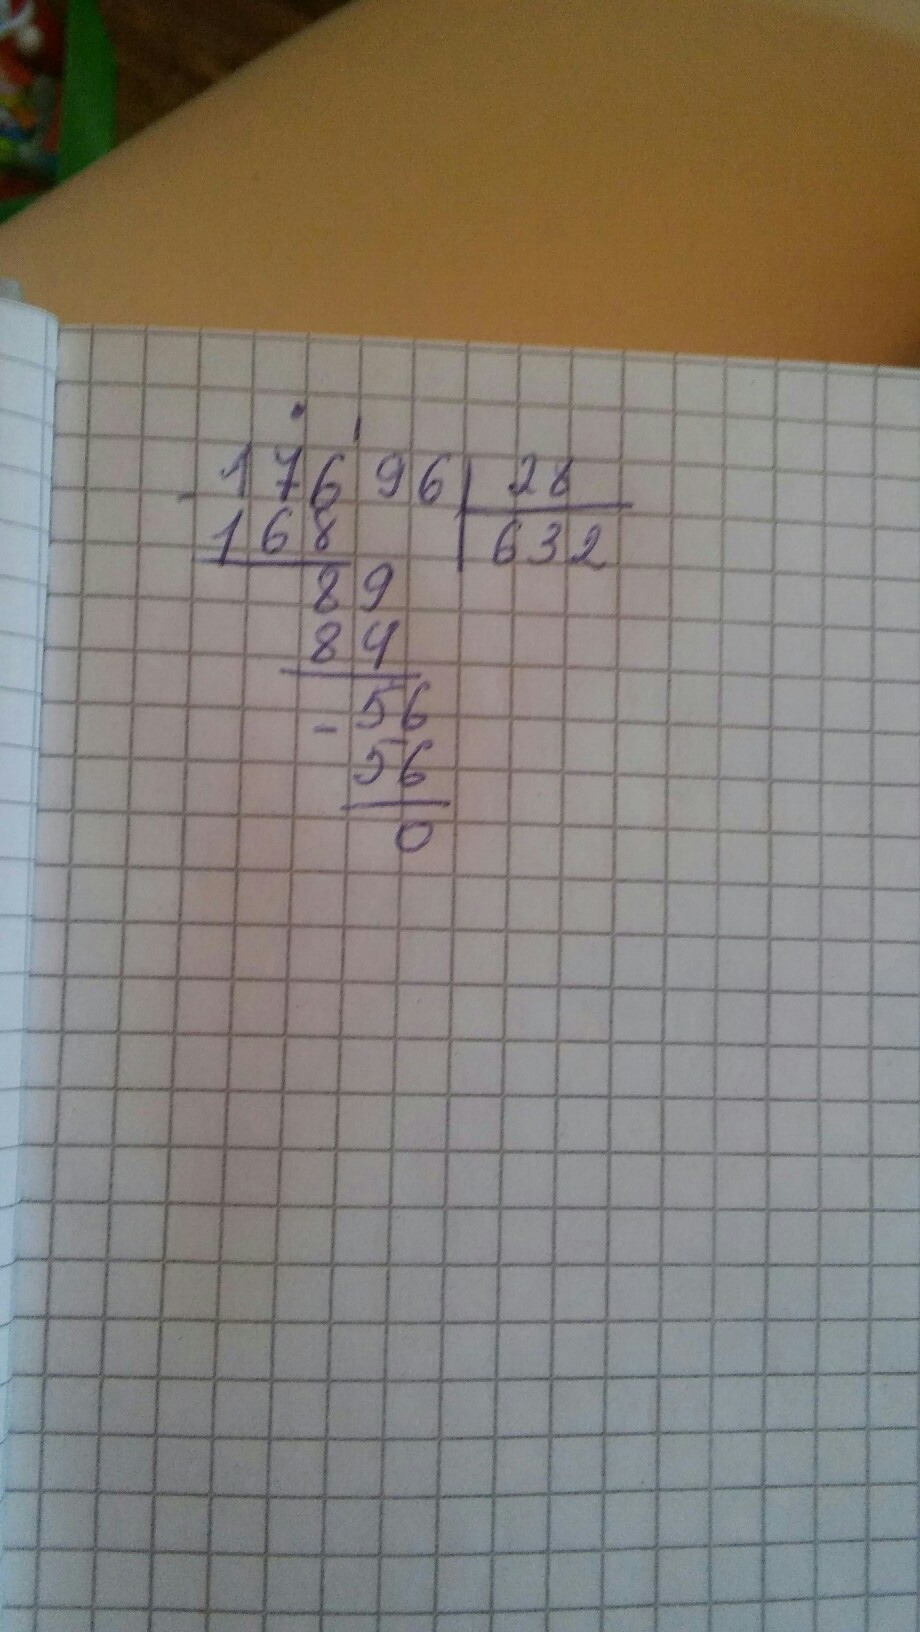 - 17696 | 28
168 | 632
89
84
- 56
56
0